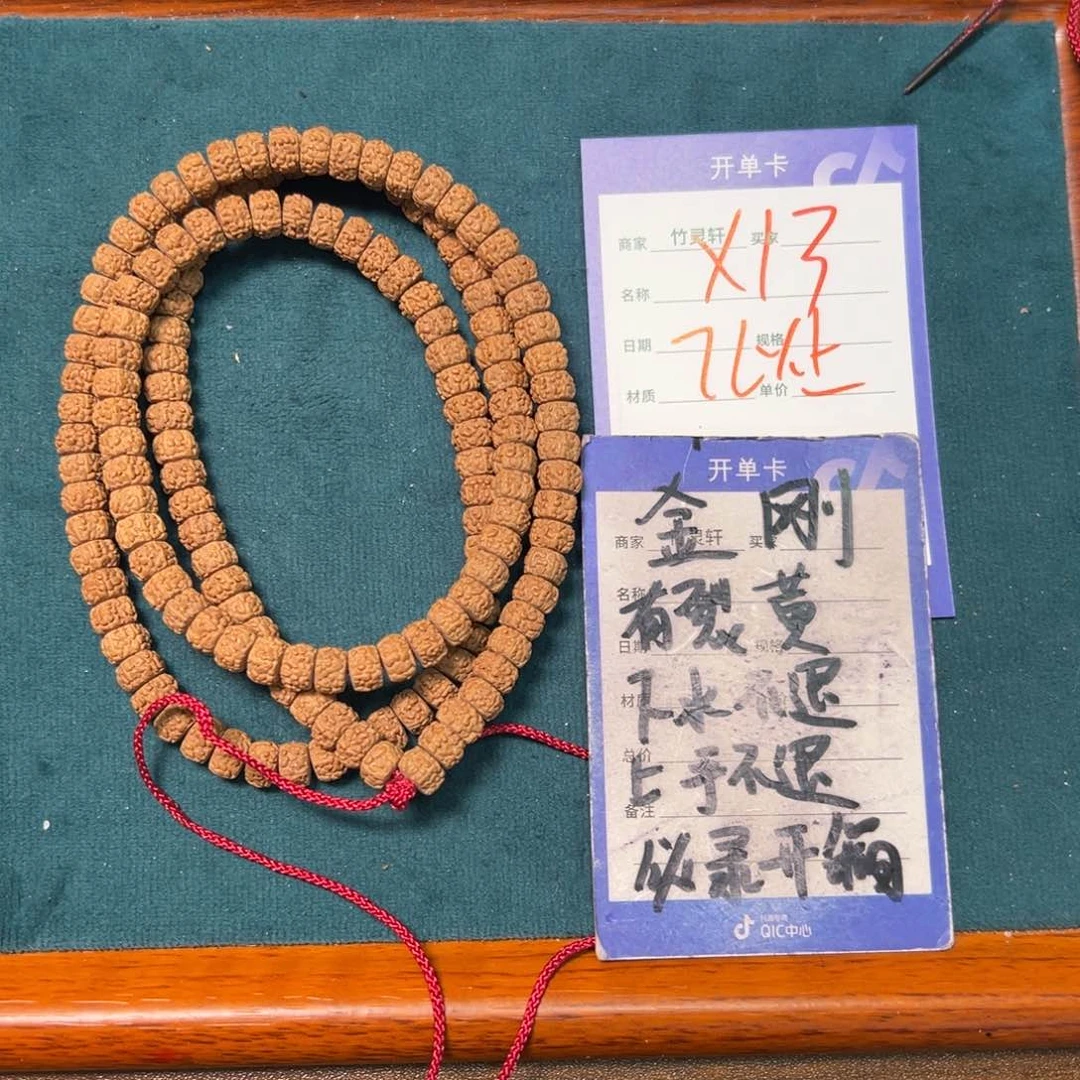 开单卡
商家 竹灵轩 买家
X13
名称
日期 规格
材质 单价
开单卡
金刚
商家 竹灵轩 买家
名称
有裂 黄
日期 规格
材质
下水不退
总价
上手不退
备注
必录开箱
QIC中心